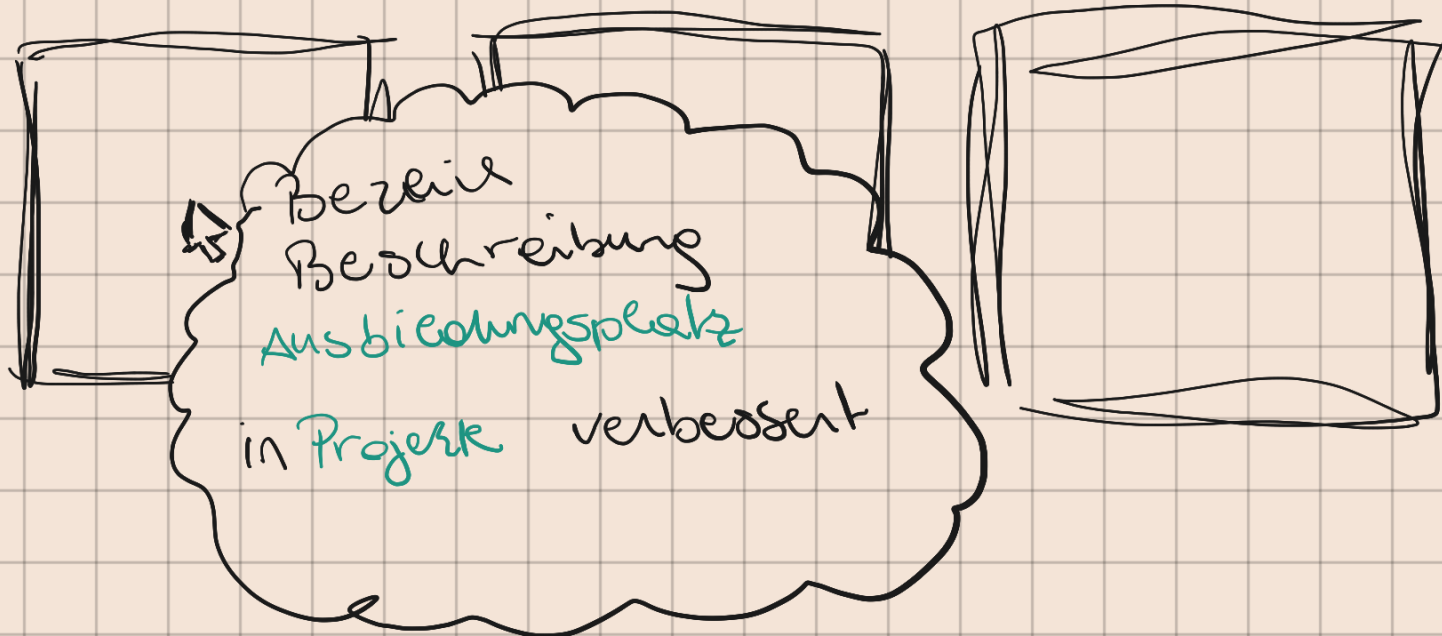 Beschreibung
Ausbildungsplatz
in Projekt verbessert